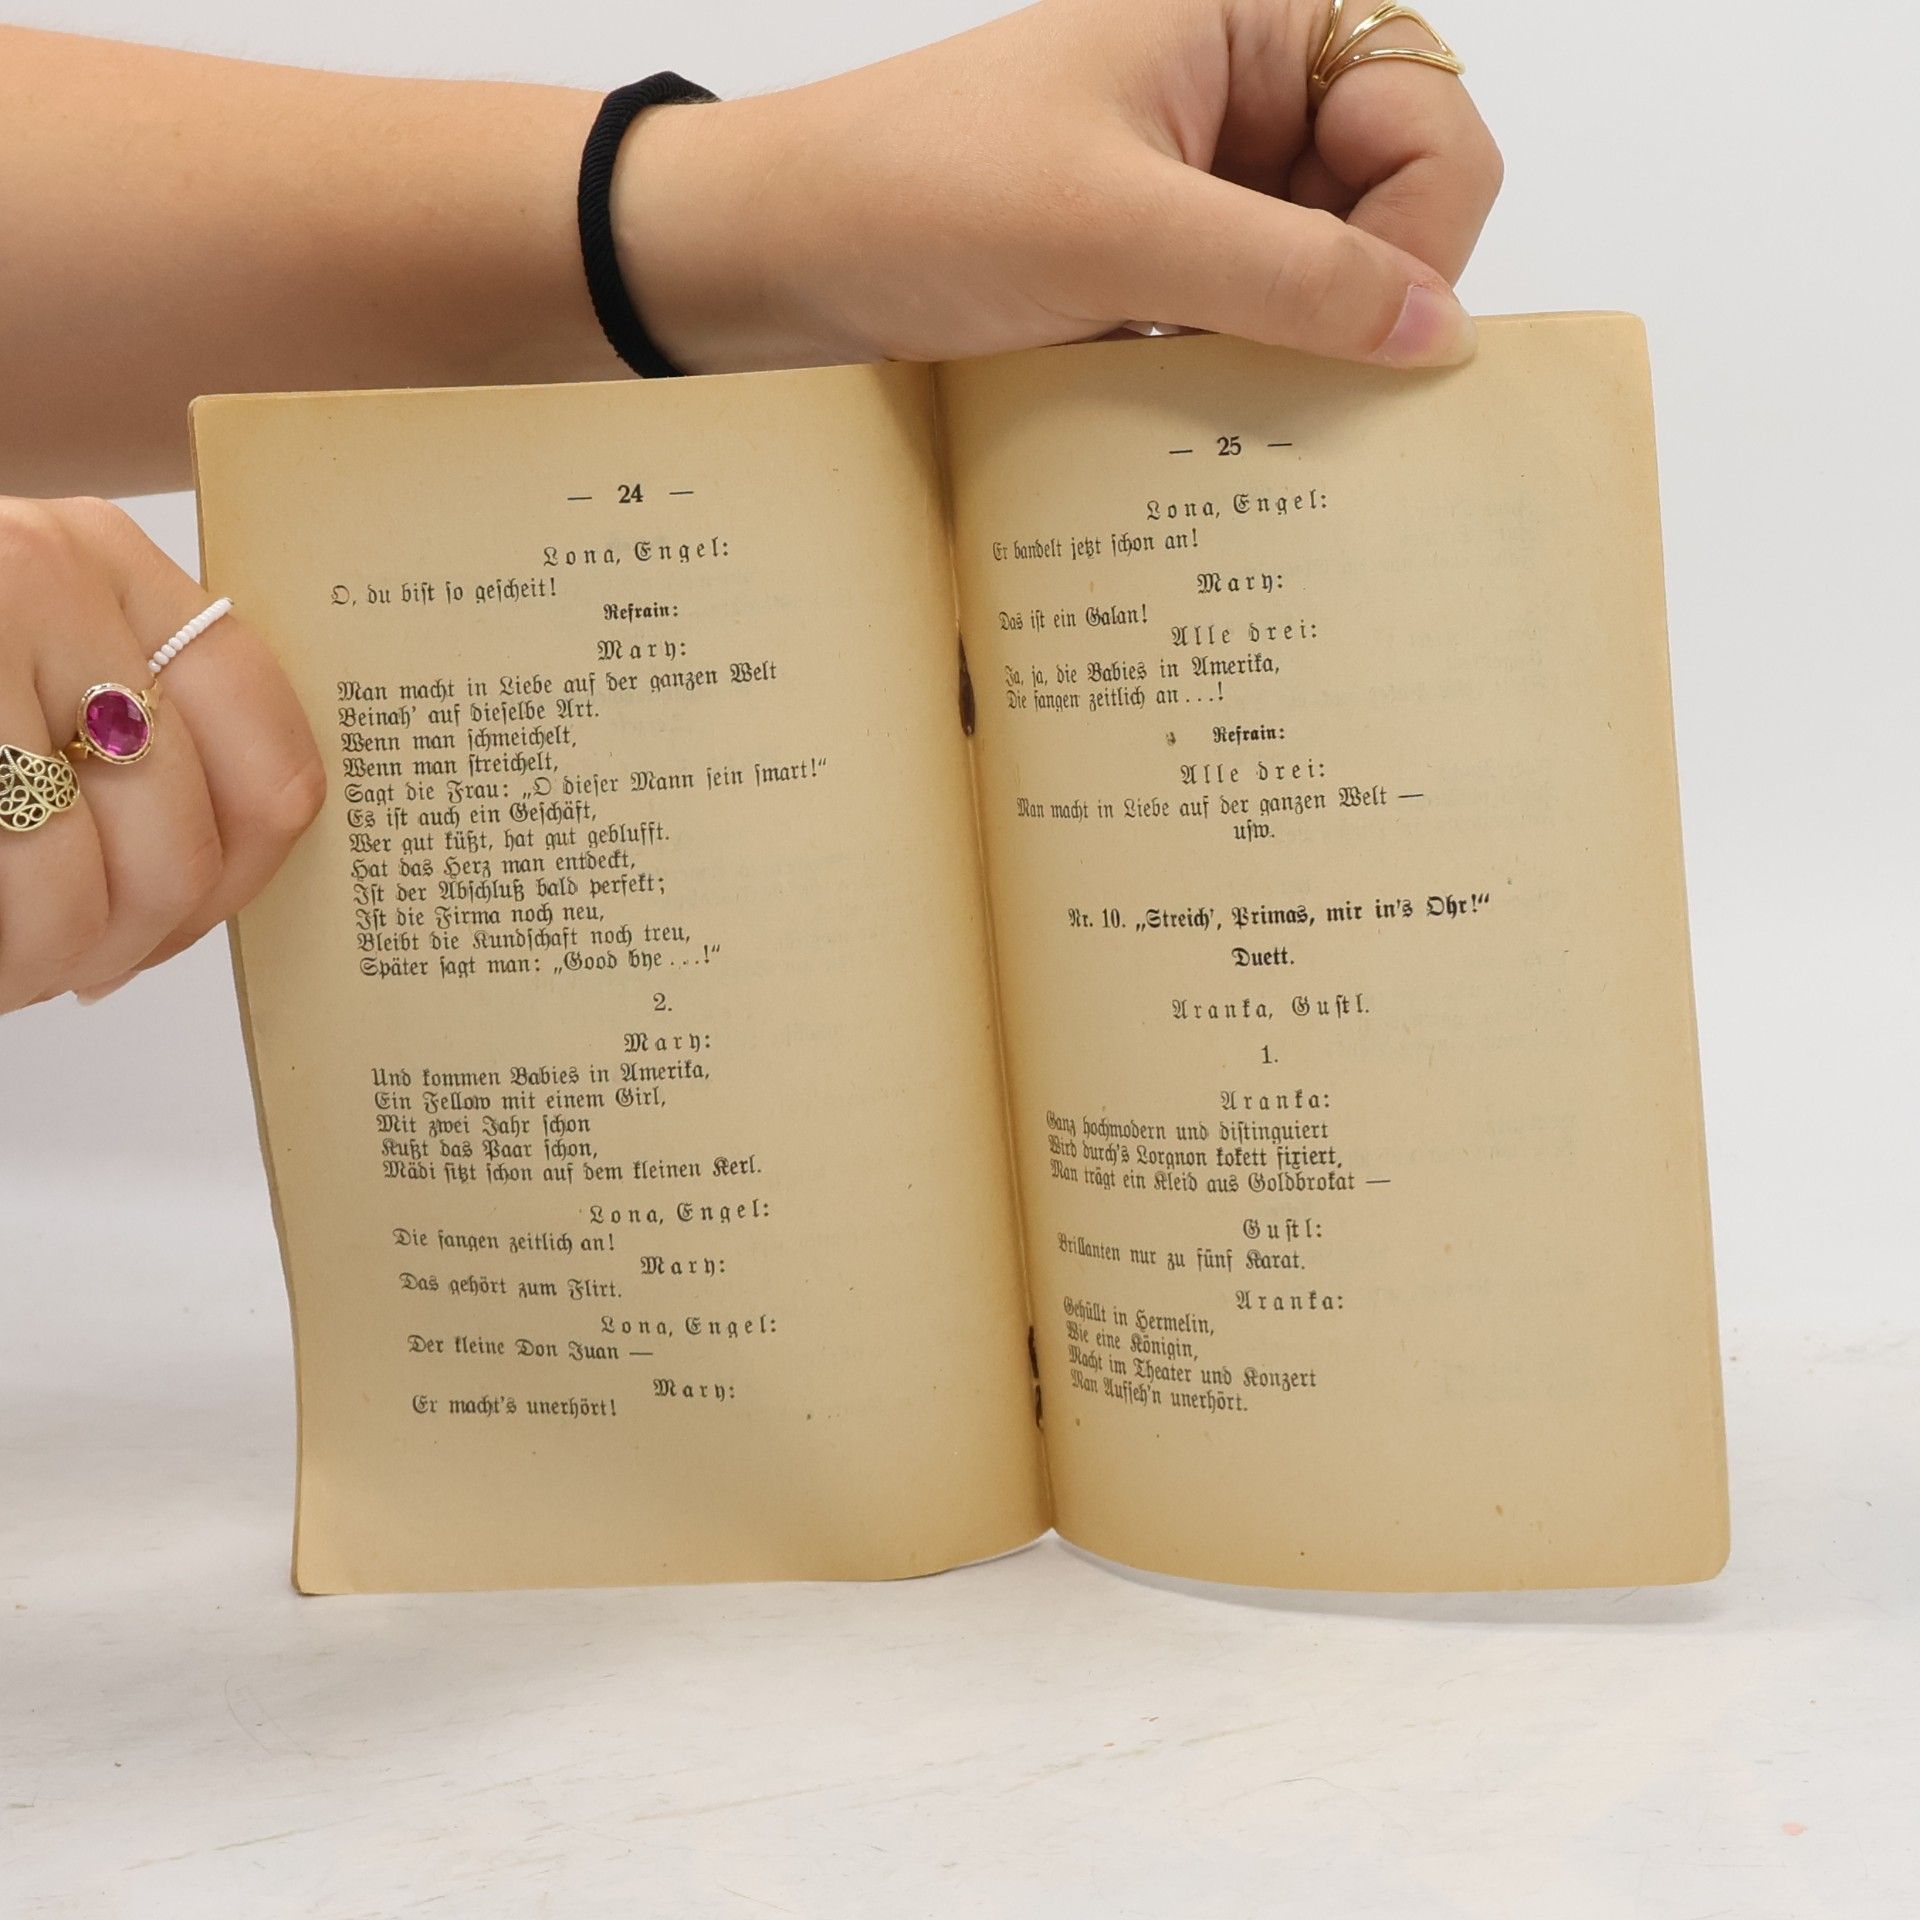 — 24 —
Lona, Engel:
O, du bist so gescheit!
Refrain:
Mary:
Man macht in Liebe auf der ganzen Welt
Beinah' auf dieselbe Art.
Wenn man schmeichelt,
Wenn man streichelt,
Sagt die Frau: „O dieser Mann sein smart!“
Es ist auch ein Geschäft,
Wer gut küßt, hat gut geblufft.
Hat das Herz man entdeckt,
Ist der Abschluß bald perfekt;
Ist die Firma noch neu,
Bleibt die Kundschaft noch treu,
Später sagt man: „Good bye . . .!“
2.
Mary:
Und kommen Babies in Amerika,
Ein Fellow mit einem Girl,
Mit zwei Jahr schon
Kußt das Paar schon,
Mädi sitzt schon auf dem kleinen Kerl.
Lona, Engel:
Die fangen zeitlich an!
Mary:
Das gehört zum Flirt.
Lona, Engel:
Der kleine Don Juan —
Mary:
Er macht's unerhört!
— 25 —
Lona, Engel:
Er bandelt jetzt schon an!
Mary:
Das ist ein Galan!
Alle drei:
Ja, ja, die Babies in Amerika,
Die fangen zeitlich an . . .!
Refrain:
Alle drei:
Man macht in Liebe auf der ganzen Welt —
usw.
Nr. 10. „Streich', Primas, mir in's Ohr!“
Duett.
Aranka, Gustl.
1.
Aranka:
Ganz hochmodern und distinguiert
Wird durch's Lorgnon kokett fixiert,
Man trägt ein Kleid aus Goldbrokat —
Gustl:
Brillanten nur zu fünf Karat.
Aranka:
Gehüllt in Hermelin,
Wie eine Königin,
Macht im Theater und Konzert
Man Aufseh'n unerhört.